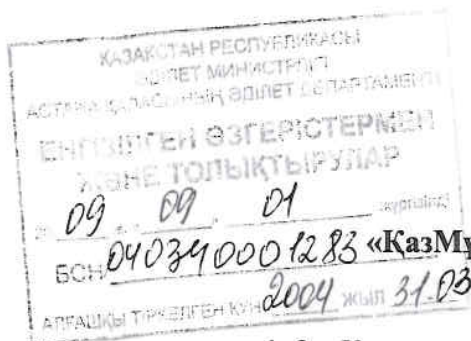 ҚАЗАҚСТАН РЕСПУБЛИКАСЫ
ӘДІЛЕТ МИНИСТРЛІГІ
АСТАНА ҚАЛАСЫНЫҢ ӘДІЛЕТ ДЕПАРТАМЕНТІ
ЕНГІЗІЛГЕН ӨЗГЕРІСТЕРМЕН
ЖӘНЕ ТОЛЫҚТЫРУЛАР
09 09 01
БСН 040340001283 «ҚазМұ
АЛҒАШҚЫ ТІРКЕЛГЕН КҮН 2004 ЖЫЛ 31.03